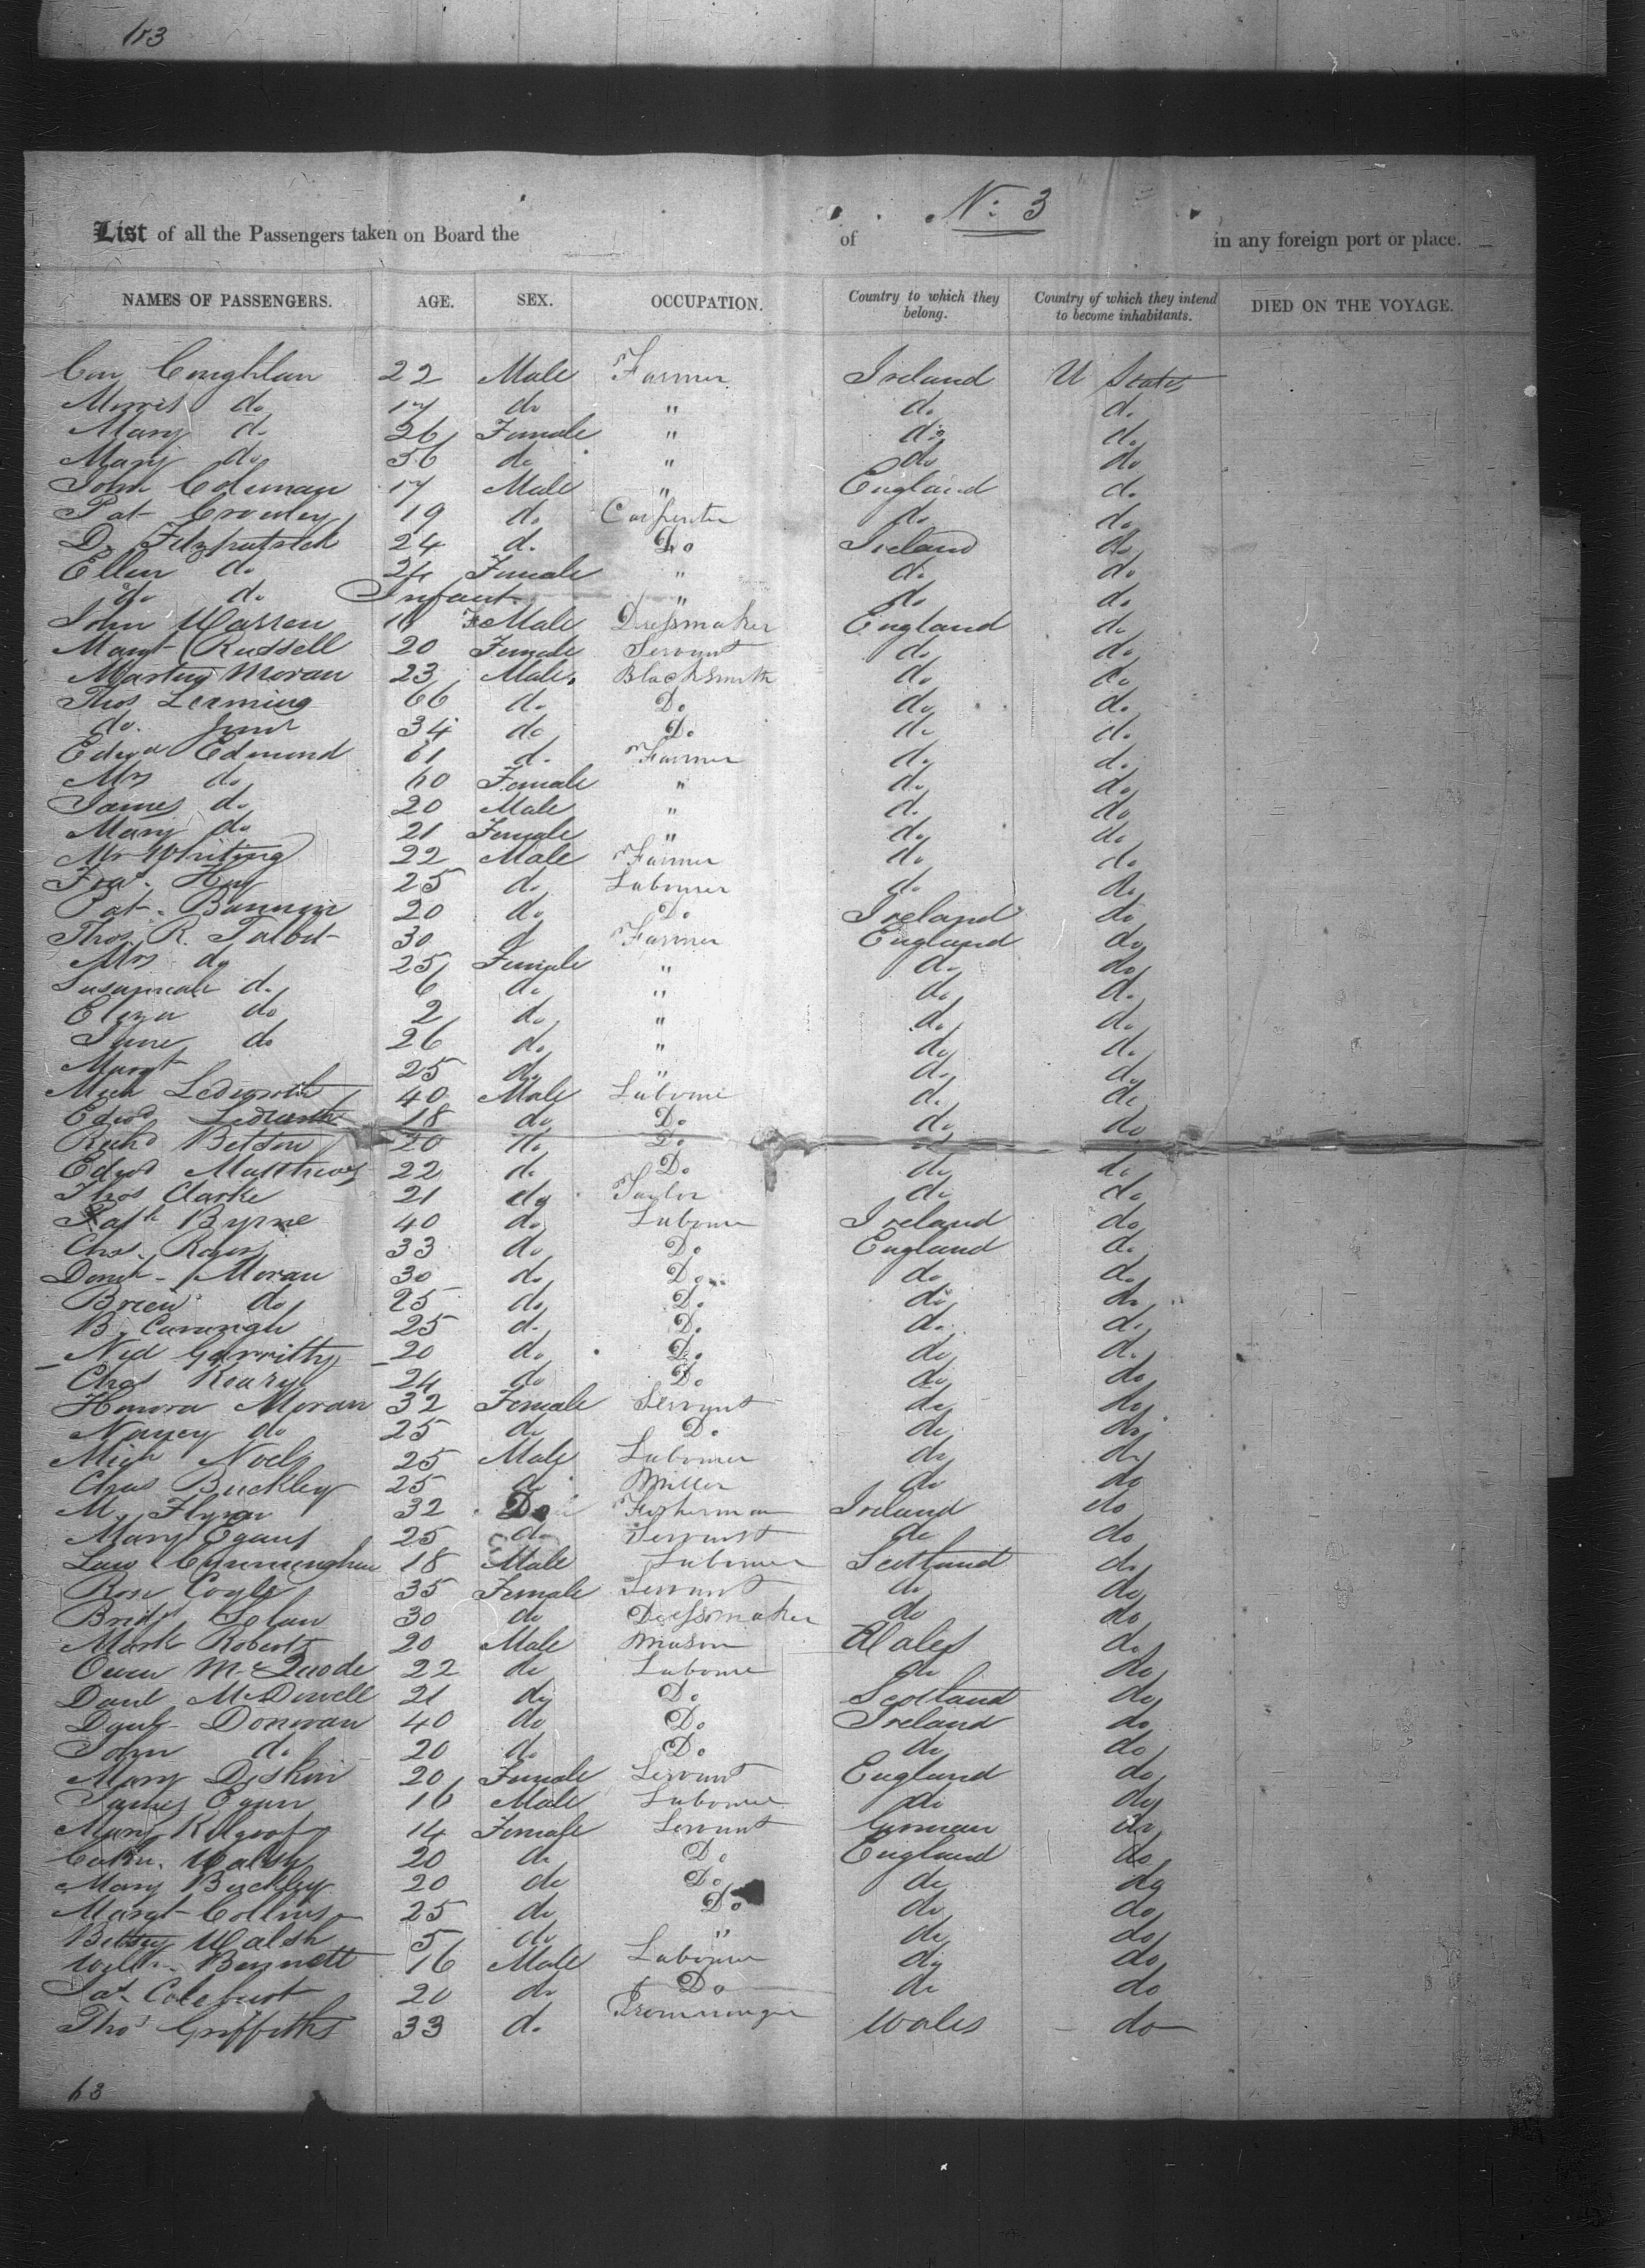 103
No: 3
List of all the Passengers taken on Board the of in any foreign port or place.
NAMES OF PASSENGERS. AGE. SEX. OCCUPATION. Country to which they belong. Country of which they intend to become inhabitants. DIED ON THE VOYAGE.
Con Coughlan 22 Male Farmer Ireland U States
Morris do 17 do " do do
Mary do 26 Female " do do
Mary do 56 do " do do
John Coleman 17 Male " England do
Pat Crowley 19 do Carpenter do do
D. Fitzpatrick 24 do Do Ireland do
Ellen do 24 Female " do do
do do Infant " do do
John Warren Male Dressmaker England do
Margt Russell 20 Female Servant do do
Martin Moran 23 Male Blacksmith do do
Thos Leeming 66 do Do do do
do. Junr 34 do Do do do
Edwd Edmond 61 do Farmer do do
Mrs do 60 Female " do do
James do 20 Male " do do
Mary do 21 Female " do do
Mr Whiting 22 Male Farmer do do
Fras. Hay 25 do Labourer do do
Pat. Bannon 20 do Do Ireland do
Thos R. Talbot 30 d Farmer England do
Mrs do 25 Female " do do
Susannah do 6 do " do do
Eliza do 2 do " do do
Jane do 26 do " do do
Margt 25 do " do do
Mich 40 Male Labourer do do
Edwd 18 do Do do do
Richd Betson 20 do Do
Edwd Matthews 22 do Do do do
Thos Clarke 21 do Taylor do do
Patk Byrne 40 do Labourer Ireland do
Chs. 33 do Do England do
Domk Moran 30 do Do do do
Brien do 25 do Do do do
B. Cavangh 25 do Do do do
Ned Garritty 20 do Do do do
Chas Keary 24 do Do do do
Honora Moran 32 Female Servant do do
Nancy do 25 do Do do do
Mich 25 Male Labourer do do
Chas Buckley 25 do Miller do do
M. Flynn 32 Do Fisherman Ireland do
Mary Egans 25 do Servant do do
Law Cunningham 18 Male Labourer Scotland do
Rose Coyle 35 Female Servant do do
Bridgt Tolan 30 do Dressmaker do do
Mark Roberts 20 Male Mason Wales do
Owen McQuode 22 do Labourer do do
Danl McDowell 21 do Do Scotland do
Danl Donovan 40 do Do Ireland do
John do 20 do Do do do
Mary Diskin 20 Female Servant England do
James Egan 16 Male Labourer do do
Mary 14 Female Servant German do
Cathn. Walsh 20 do Do England do
Mary Buckley 20 do Do do do
Margt Collins 25 do Do do do
Betsey Walsh 5 do " do do
Willm. Bennett 16 Male Labourer do do
Jas. 20 do Do do do
Thos Griffiths 33 do Ironmonger Wales do
63